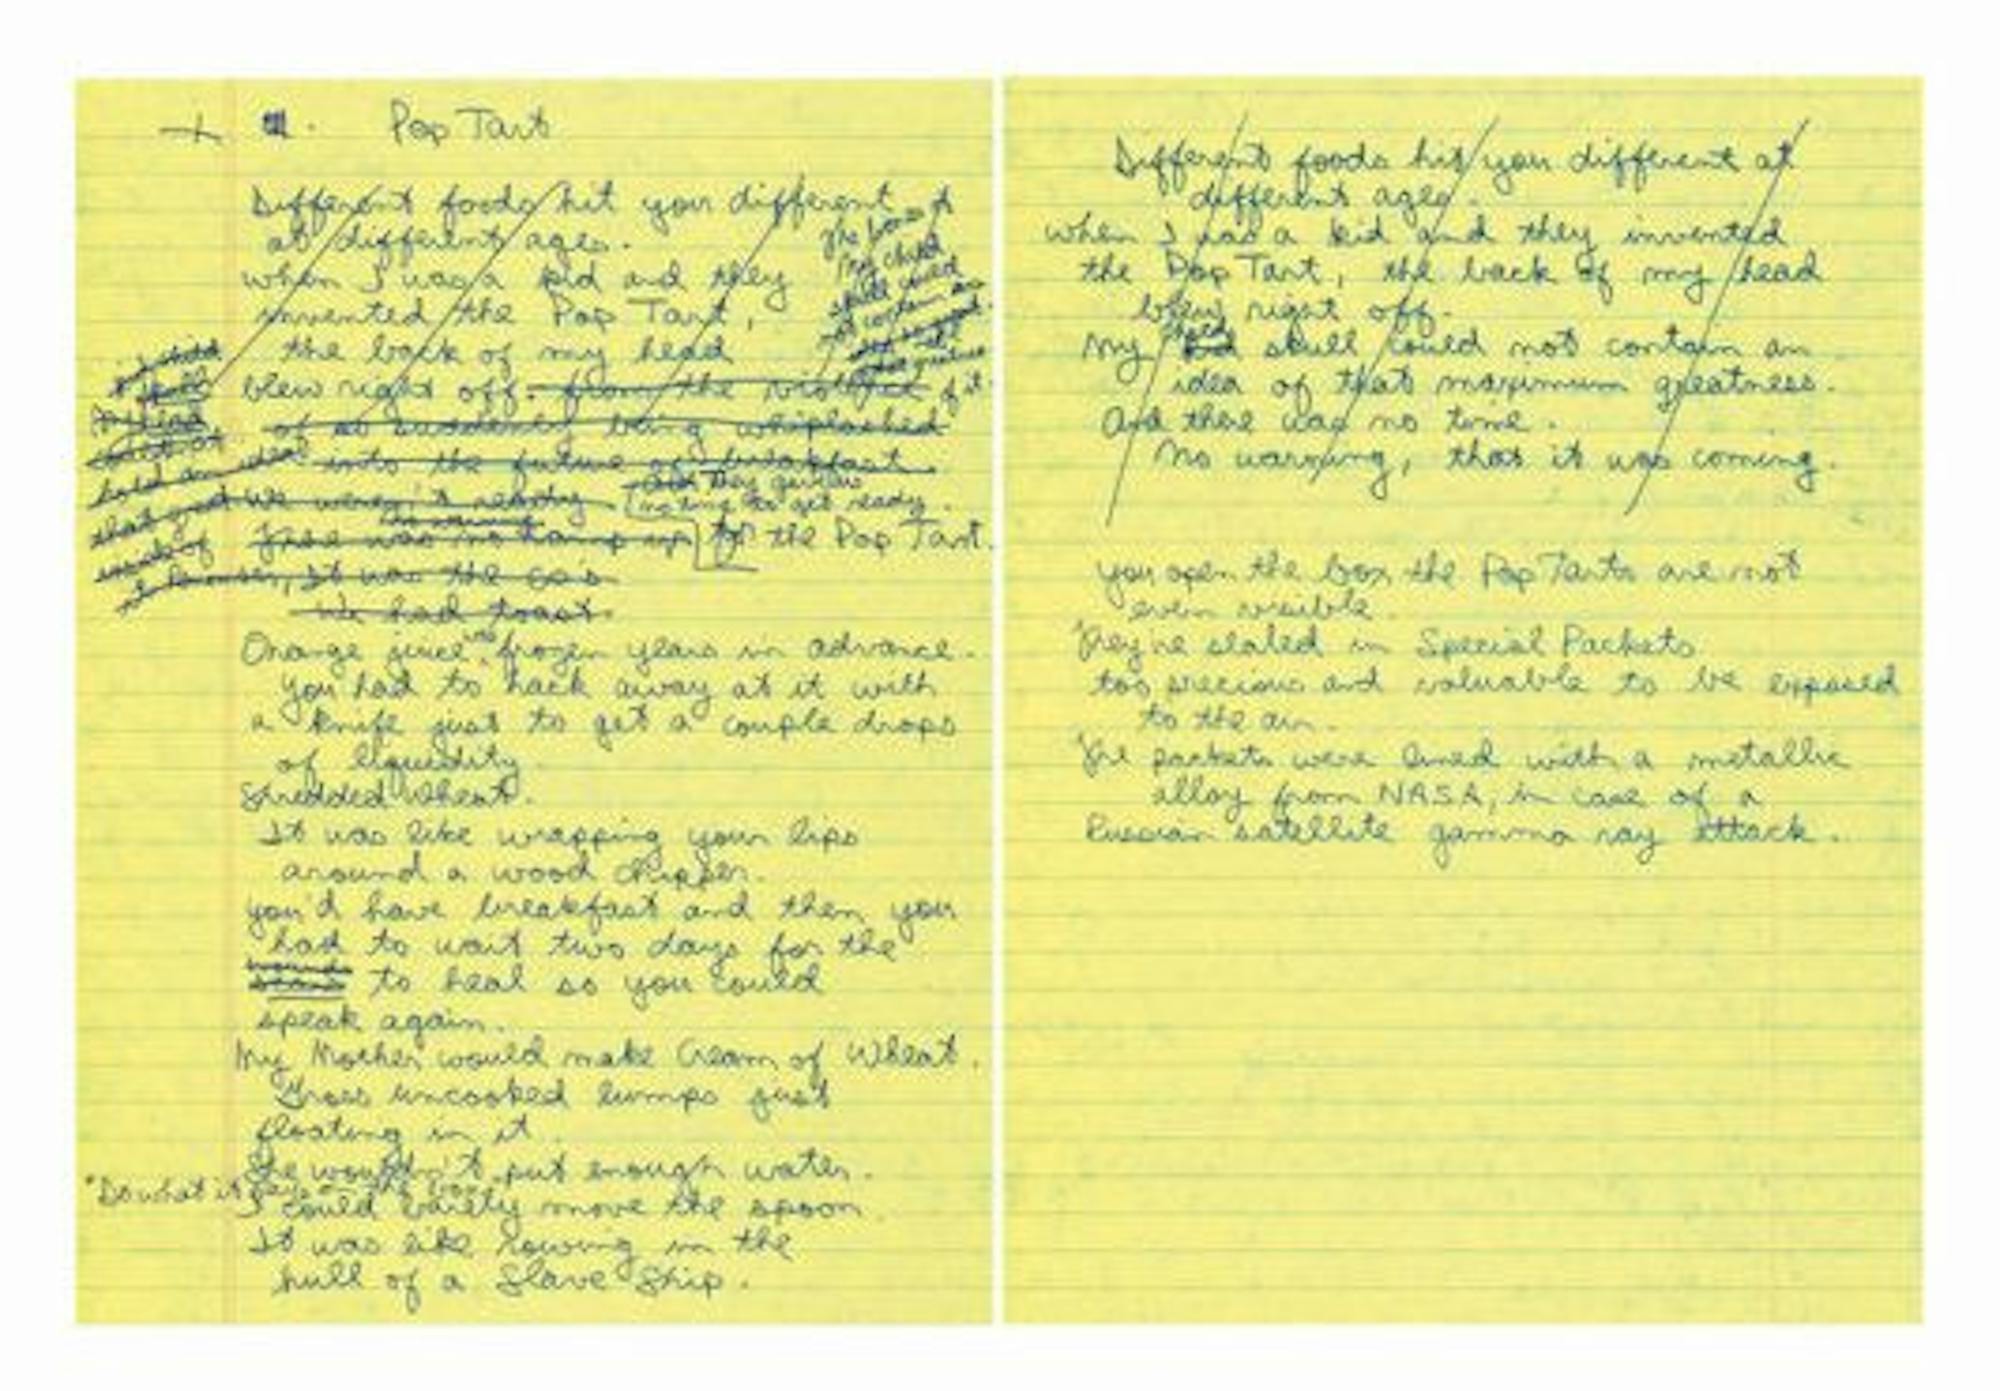 Pop Tart
Different foods hit you different
at different ages.
when I was a kid and they
invented the Pop Tart,
the back of my head
blew right off. from the violence of it.
of so suddenly being whiplashed
into the future of breakfast
and they gave us
we weren't ready no time to get ready.
There was no ramp up for the Pop Tart.
It was the 60's
We had toast.
Orange juice was frozen years in advance.
you had to hack away at it with
a knife just to get a couple drops
of liquidity.
Shredded Wheat.
It was like wrapping your lips
around a wood chipper.
you'd have breakfast and then you
had to wait two days for the
wounds
to heal so you could
speak again.
My Mother would make Cream of Wheat.
Gross uncooked lumps just
floating in it.
She wouldn't put enough water.
"Do what it says on the box
I could barely move the spoon.
It was like rowing in the
hull of a Slave Ship.
Different foods hit you different at
different ages.
when I was a kid and they invented
the Pop Tart, the back of my head
blew right off.
My skull could not contain an
idea of that maximum greatness.
And there was no time.
No warning, that it was coming.
you open the box the Pop Tarts are not
even visible.
They're sealed in Special Packets
too precious and valuable to be exposed
to the air.
The packets were lined with a metallic
alloy from NASA, in case of a
Russian satellite gamma ray attack.